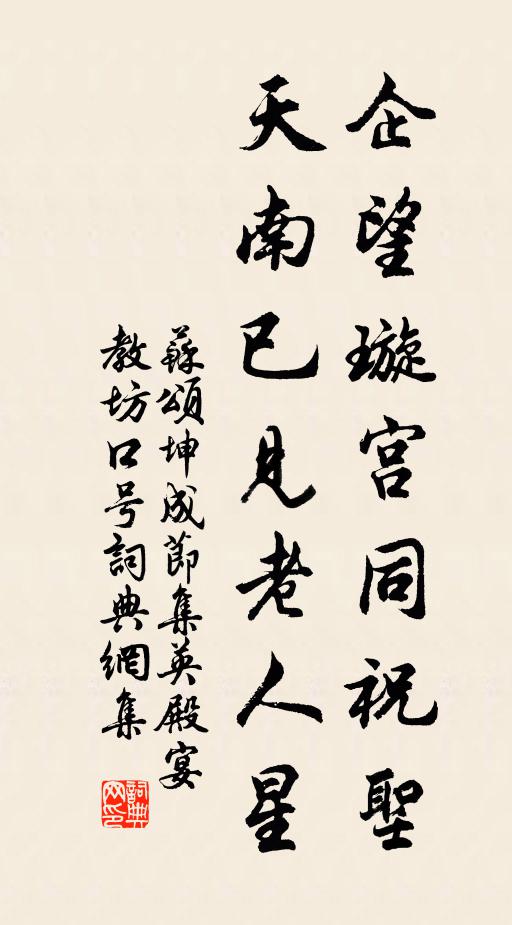 企望璇宫同祝聖
天南已見老人星
蘇頌坤成節集英殿宴
教坊口号詞典網集
詞典网印